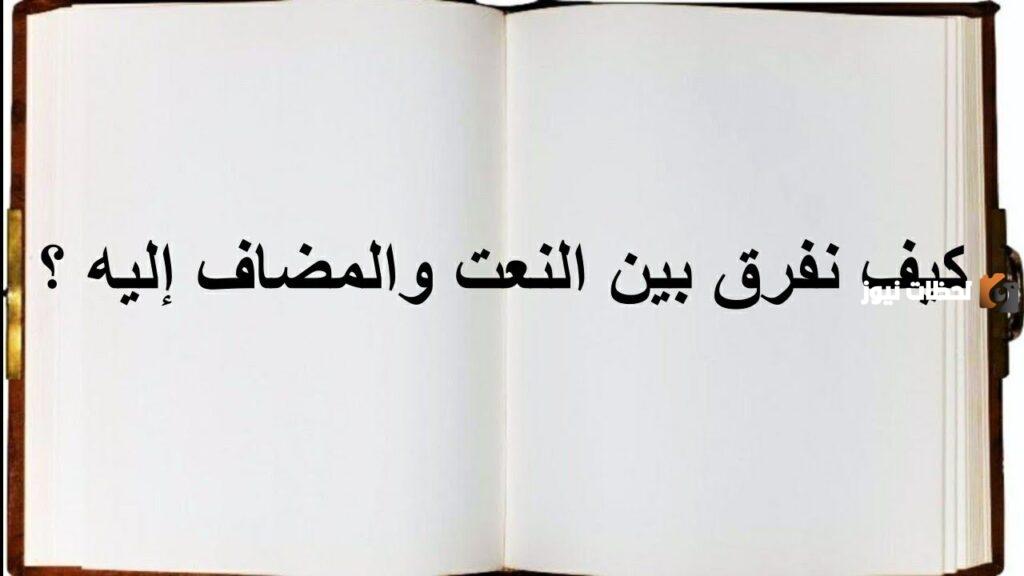 كيف نفرق بين النعت والمضاف إليه ؟
لحظات نيوز